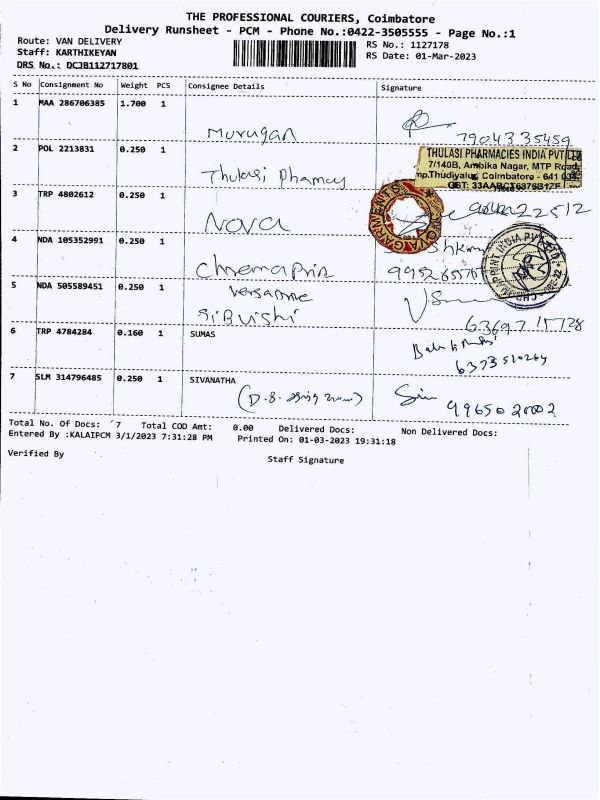 THE PROFESSIONAL COURIERS, Coimbatore
Delivery Runsheet - PCM - Phone No.:0422-3505555 - Page No.:1
Route: VAN DELIVERY
RS No.: 1127178
Staff: KARTHIKEYAN
RS Date: 01-Mar-2023
DRS No.: DCJB112717801
S No Consignment No Weight PCS Consignee Details Signature
1 MAA 286706385 1.700 1
Murugan
7904335459
2 POL 2213831 0.250 1
Thulasi Phamay
THULASI PHARMACIES INDIA PVT LTD
7/140B, Ambika Nagar, MTP Road
Thudiyalur, Coimbatore - 641
3 TRP 4802612 0.250 1
Nova
NOVA GARMENTS
4 NDA 105352991 0.250 1
Chremaprin
5 NDA 505589451 0.250 1
SiBurshi
6369715728
6 TRP 4784284 0.160 1 SUMAS
7 SLM 314796485 0.250 1 SIVANATHA
9965020002
Total No. Of Docs: 7 Total COD Amt: 0.00 Delivered Docs: Non Delivered Docs:
Entered By :KALAIPCM 3/1/2023 7:31:28 PM Printed On: 01-03-2023 19:31:18
Verified By
Staff Signature